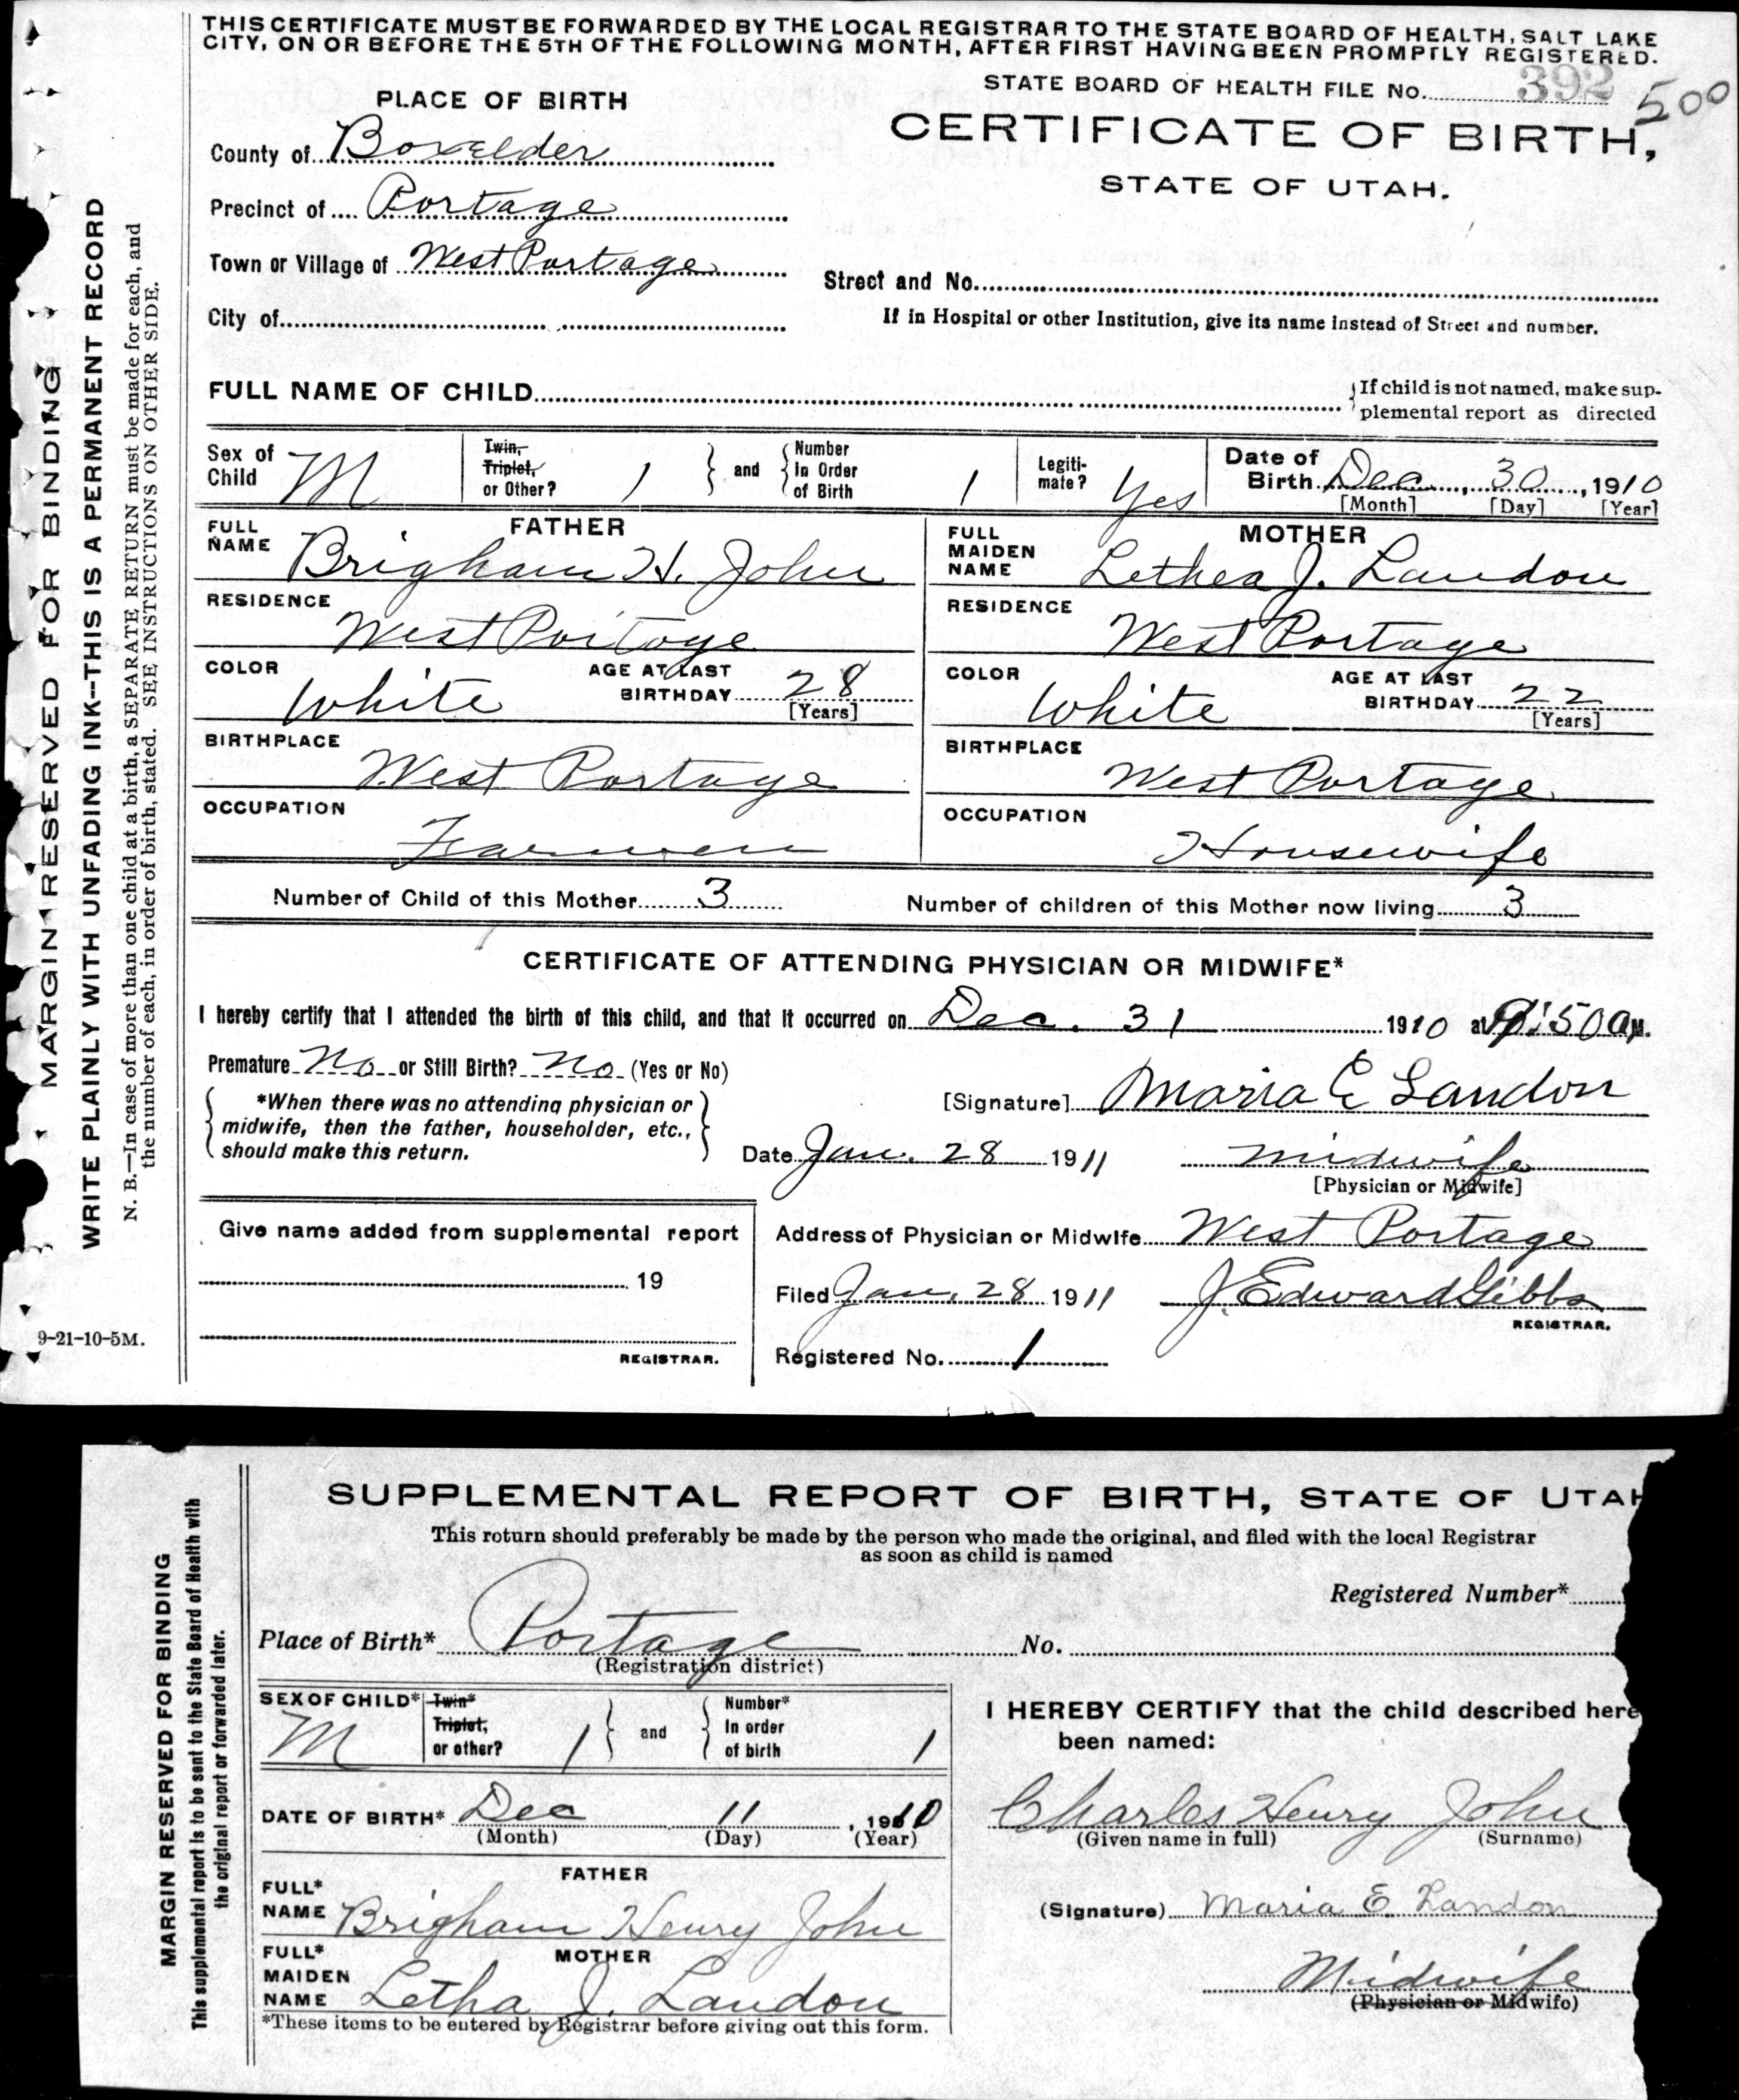 THIS CERTIFICATE MUST BE FORWARDED BY THE LOCAL REGISTRAR TO THE STATE BOARD OF HEALTH, SALT LAKE
CITY, ON OR BEFORE THE 5TH OF THE FOLLOWING MONTH, AFTER FIRST HAVING BEEN PROMPTLY REGISTERED.
STATE BOARD OF HEALTH FILE No. 392 500
PLACE OF BIRTH
CERTIFICATE OF BIRTH,
STATE OF UTAH.
County of Boxelder
Precinct of Portage
Town or Village of West Portage
Street and No.
City of
If in Hospital or other Institution, give its name instead of Street and number.
FULL NAME OF CHILD
If child is not named, make sup-
plemental report as directed
Sex of Child M
Twin, Triplet, or Other? 1
and
Number In Order of Birth 1
Legiti-mate? Yes
Date of Birth Dec 30, 1910
[Month] [Day] [Year]
FATHER
FULL NAME Brigham H. John
RESIDENCE West Portage
COLOR White
AGE AT LAST BIRTHDAY 28
[Years]
BIRTHPLACE West Portage
OCCUPATION Farmer
MOTHER
FULL MAIDEN NAME Lethea J. Landon
RESIDENCE West Portage
COLOR White
AGE AT LAST BIRTHDAY 22
[Years]
BIRTHPLACE West Portage
OCCUPATION Housewife
Number of Child of this Mother 3
Number of children of this Mother now living 3
CERTIFICATE OF ATTENDING PHYSICIAN OR MIDWIFE*
I hereby certify that I attended the birth of this child, and that it occurred on Dec. 31 1910 at 9:50 a M.
Premature No or Still Birth? No (Yes or No)
*When there was no attending physician or
midwife, then the father, householder, etc.,
should make this return.
[Signature] Maria E Landon
Date Jan. 28 1911 midwife
[Physician or Midwife]
Give name added from supplemental report
19
REGISTRAR.
Address of Physician or Midwife West Portage
Filed Jan. 28 1911 J. Edward Gibbs
REGISTRAR.
Registered No. 1
MARGIN RESERVED FOR BINDING
WRITE PLAINLY WITH UNFADING INK--THIS IS A PERMANENT RECORD
N. B.—In case of more than one child at a birth, a SEPARATE RETURN must be made for each, and
the number of each, in order of birth, stated. SEE INSTRUCTIONS ON OTHER SIDE.
9-21-10-5M.
SUPPLEMENTAL REPORT OF BIRTH, STATE OF UTAH
This return should preferably be made by the person who made the original, and filed with the local Registrar
as soon as child is named
Registered Number*
Place of Birth* Portage No.
(Registration district)
SEX OF CHILD* M
Twin* Triplet, or other? 1
and
Number* In order of birth 1
DATE OF BIRTH* Dec 11, 1910
(Month) (Day) (Year)
FATHER
FULL* NAME Brigham Henry John
MOTHER
FULL* MAIDEN NAME Letha J. Landon
*These items to be entered by Registrar before giving out this form.
I HEREBY CERTIFY that the child described here
been named:
Charles Henry John
(Given name in full) (Surname)
(Signature) Maria E. Landon
Midwife
(Physician or Midwife)
MARGIN RESERVED FOR BINDING
This supplemental report is to be sent to the State Board of Health with
the original report or forwarded later.